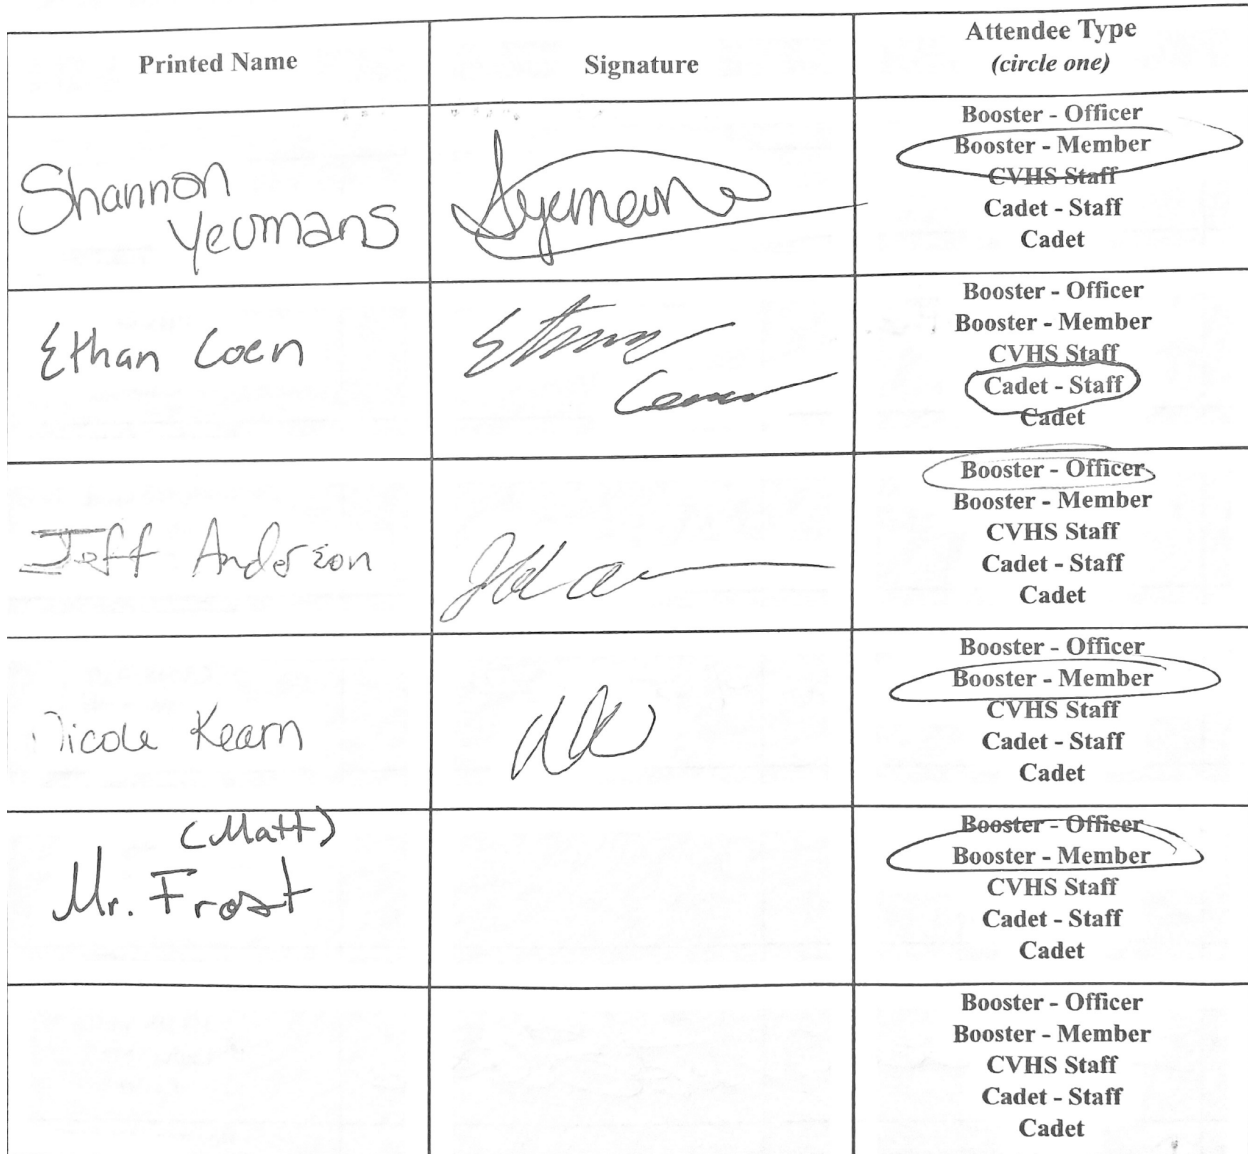 Printed Name
Signature
Attendee Type
(circle one)
Shannon
Yeomans
Booster - Officer
Booster - Member
CVHS Staff
Cadet - Staff
Cadet
Ethan Coen
Ethan
Coen
Booster - Officer
Booster - Member
CVHS Staff
Cadet - Staff
Cadet
Jeff Anderson
Booster - Officer
Booster - Member
CVHS Staff
Cadet - Staff
Cadet
Nicole Kearn
Booster - Officer
Booster - Member
CVHS Staff
Cadet - Staff
Cadet
(Matt)
Mr. Frost
Booster - Officer
Booster - Member
CVHS Staff
Cadet - Staff
Cadet
Booster - Officer
Booster - Member
CVHS Staff
Cadet - Staff
Cadet